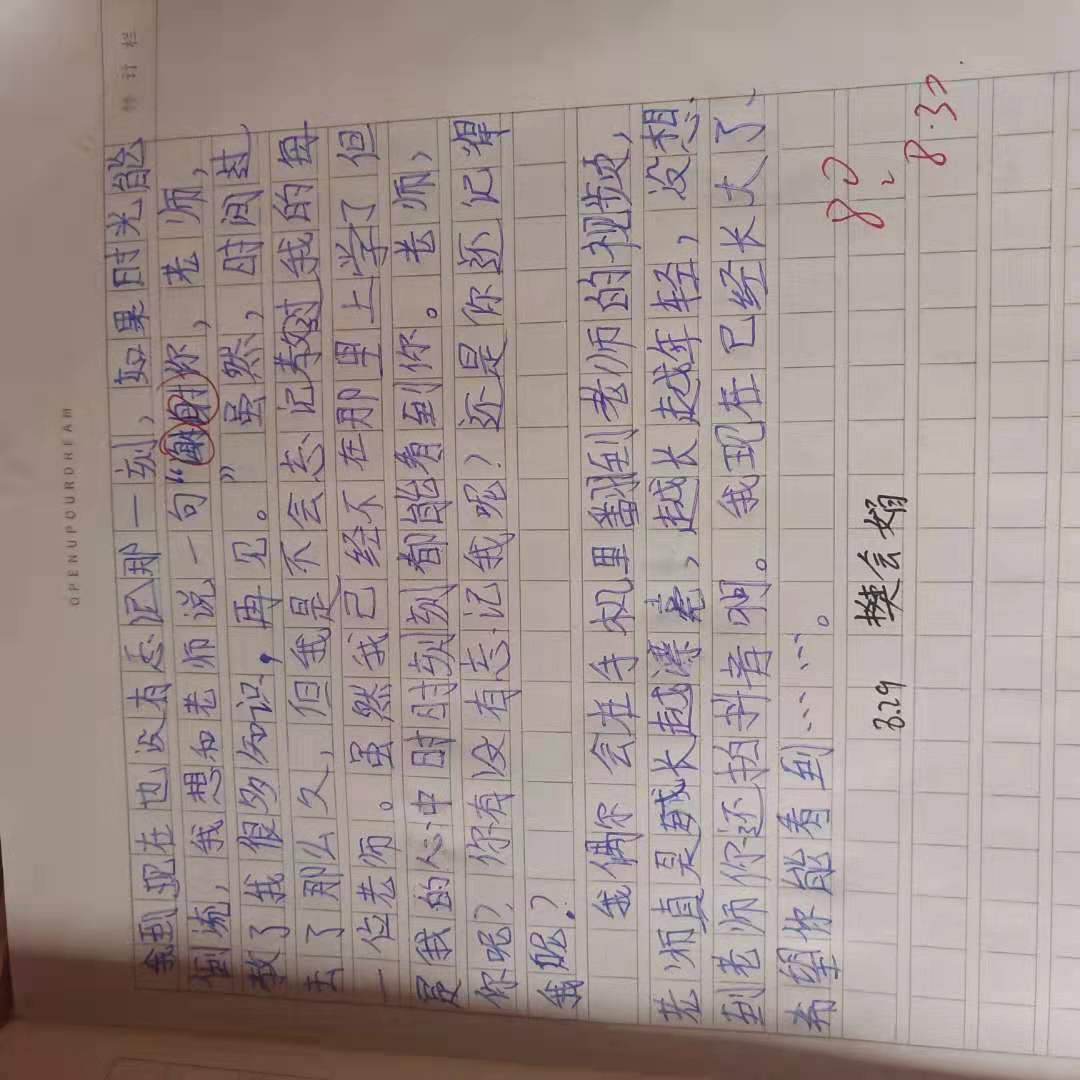 统计栏
OPENUPOURDREAM
我到现在也没有忘记那一刻，如果时光能
倒流，我想和老师说一句“谢谢你，老师，
教了我很多知识，再见。”虽然，时间过
去了那么久，但我是不会忘记教过我的每
一位老师。虽然我已经不在那里上学了但
是我的心中时时刻刻都能看到你。老师，
你呢？你有没有忘记我呢？还是你还记得
我呢？
我偶尔会在手机里翻到老师的视频，
老师真是越长越漂亮，越长越年轻，没想
到老师你还拍抖音啊。我现在已经长大了、
希望你能看到……。
8.29 樊会娟
80
8.30